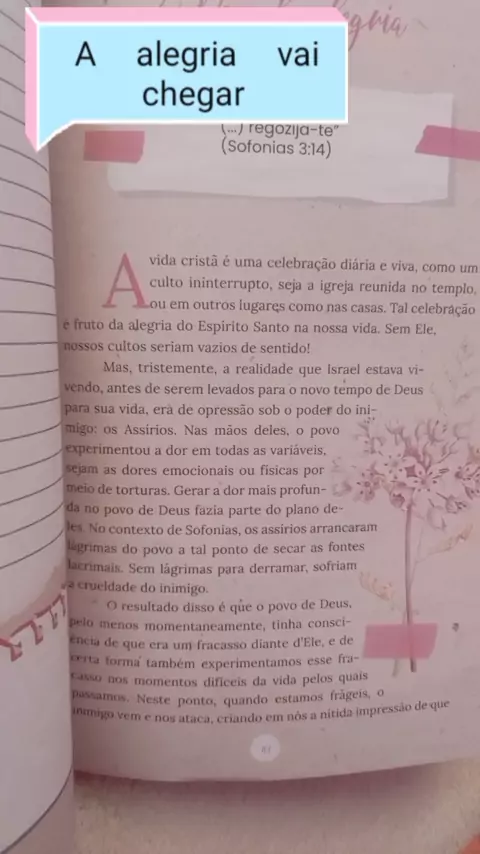 alegria
A alegria vai
chegar
(...) regozija-te"
(Sofonias 3:14)
A vida cristã é uma celebração diária e viva, como um
culto ininterrupto, seja a igreja reunida no templo,
ou em outros lugares como nas casas. Tal celebração
é fruto da alegria do Espírito Santo na nossa vida. Sem Ele,
nossos cultos seriam vazios de sentido!
Mas, tristemente, a realidade que Israel estava vi-
vendo, antes de serem levados para o novo tempo de Deus
para sua vida, era de opressão sob o poder do ini-
migo: os Assírios. Nas mãos deles, o povo
experimentou a dor em todas as variáveis,
sejam as dores emocionais ou físicas por
meio de torturas. Gerar a dor mais profun-
da no povo de Deus fazia parte do plano de-
les. No contexto de Sofonias, os assírios arrancaram
lágrimas do povo a tal ponto de secar as fontes
lacrimais. Sem lágrimas para derramar, sofriam
a crueldade do inimigo.
O resultado disso é que o povo de Deus,
pelo menos momentaneamente, tinha consci-
ência de que era um fracasso diante d'Ele, e de
certa forma também experimentamos esse fra-
casso nos momentos difíceis da vida pelos quais
passamos. Neste ponto, quando estamos frágeis, o
inimigo vem e nos ataca, criando em nós a nítida impressão de que